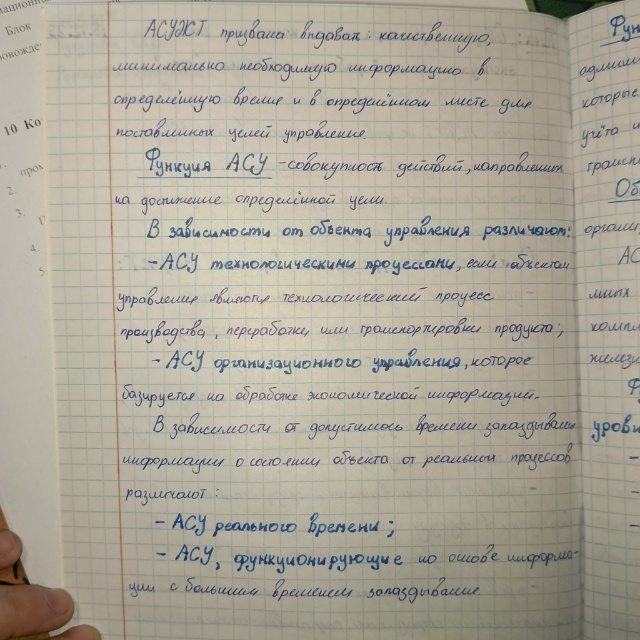 АСУЖТ призвана выдавать: качественную,
минимально необходимую информацию в
определённую время и в определённом месте для
поставленных целей управления.
Функция АСУ - совокупность действий, направленных
на достижение определённой цели.
В зависимости от объекта управления различают:
- АСУ технологическими процессами, если объектом
управления является технологический процесс
производства, переработки или транспортировки продукта;
- АСУ организационного управления, которое
базируется на обработке экономической информации.
В зависимости от допустимого времени запаздывания
информации о состоянии объекта от реальных процессов
различают:
- АСУ реального времени;
- АСУ, функционирующие на основе информа-
ции с большим временем запаздывания.
Блок
10 Ко
2.
3.
4.
5.
Фун
админ
которые
учёта и
транспо
Об
органи
АС
мных
компле
железн
Ф
уровн